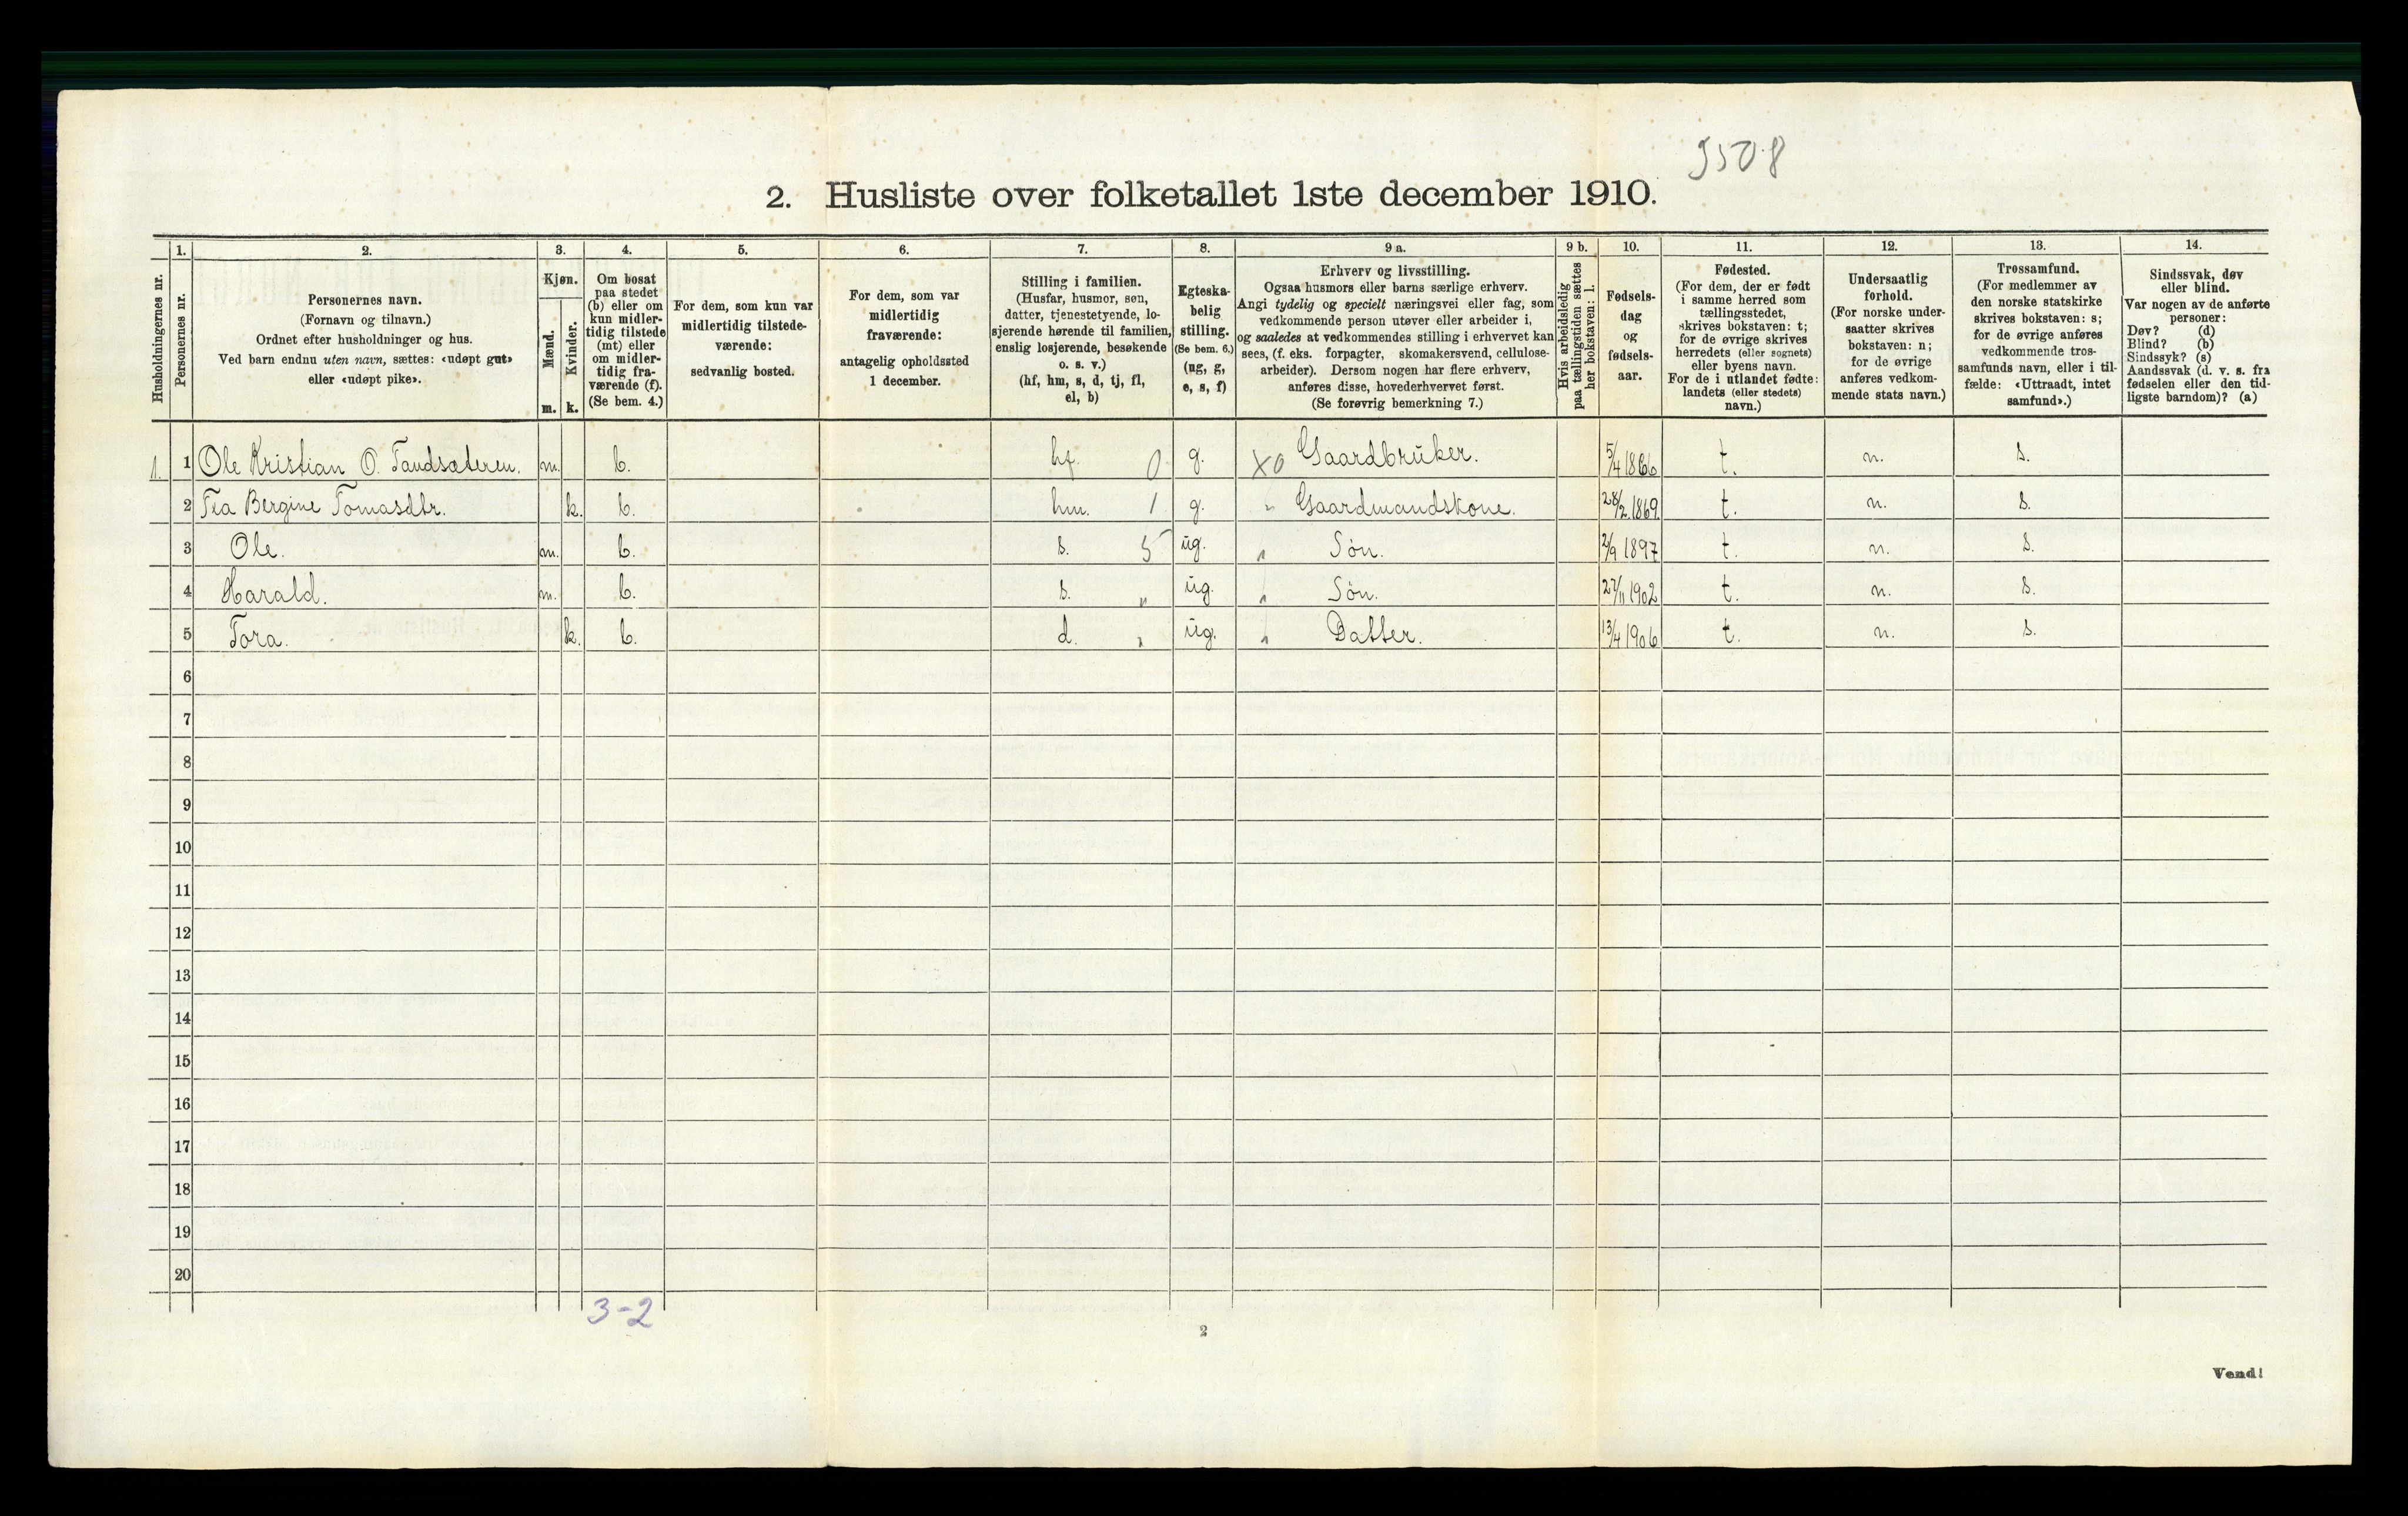 9508
2. Husliste over folketallet 1ste december 1910.
1. 2. 3. 4. 5. 6. 7. 8. 9 a. 9 b. 10. 11. 12. 13. 14.
Husholdningernes nr.
Personernes nr.
Personernes navn.
(Fornavn og tilnavn.)
Ordnet efter husholdninger og hus.
Ved barn endnu uten navn, sættes: «udøpt gut»
eller «udøpt pike».
Kjøn.
Mænd.
Kvinder.
m. k.
Om bosat
paa stedet
(b) eller om
kun midler-
tidig tilstede
(mt) eller
om midler-
tidig fra-
værende (f).
(Se bem. 4.)
For dem, som kun var
midlertidig tilstede-
værende:
sedvanlig bosted.
For dem, som var
midlertidig
fraværende:
antagelig opholdssted
1 december.
Stilling i familien.
(Husfar, husmor, søn,
datter, tjenestetyende, lo-
sjerende hørende til familien,
enslig losjerende, besøkende
o. s. v.)
(hf, hm, s, d, tj, fl,
el, b)
Egteska-
belig
stilling.
(Se bem. 6.)
(ug, g,
e, s, f)
Erhverv og livsstilling.
Ogsaa husmors eller barns særlige erhverv.
Angi tydelig og specielt næringsvei eller fag, som
vedkommende person utøver eller arbeider i,
og saaledes at vedkommendes stilling i erhvervet kan
sees, (f. eks. forpagter, skomakersvend, cellulose-
arbeider). Dersom nogen har flere erhverv,
anføres disse, hovederhvervet først.
(Se forøvrig bemerkning 7.)
Hvis arbeidsledig
paa tællingstiden sættes
her bokstaven: l.
Fødsels-
dag
og
fødsels-
aar.
Fødested.
(For dem, der er født
i samme herred som
tællingsstedet,
skrives bokstaven: t;
for de øvrige skrives
herredets (eller sognets)
eller byens navn.
For de i utlandet fødte:
landets (eller stedets)
navn.)
Undersaatlig
forhold.
(For norske under-
saatter skrives
bokstaven: n;
for de øvrige
anføres vedkom-
mende stats navn.)
Trossamfund.
(For medlemmer av
den norske statskirke
skrives bokstaven: s;
for de øvrige anføres
vedkommende tros-
samfunds navn, eller i til-
fælde: «Uttraadt, intet
samfund».)
Sindssvak, døv
eller blind.
Var nogen av de anførte
personer:
Døv? (d)
Blind? (b)
Sindssyk? (s)
Aandssvak (d. v. s. fra
fødselen eller den tid-
ligste barndom)? (a)
1. 1 Ole Kristian O. Tandsæteren. m. b. hf. 0 g. X0 Gaardbruker. 5/4 1866 t. n. s.
2 Tea Bergine Tomasdtr. k. b. hm. 1 g. " Gaardmandskone. 28/2 1869. t. n. s.
3 Ole. m. b. s. 5 ug. " Søn. 2/9 1897 t. n. s.
4 Harald. m. b. s. " ug. " Søn. 27/11 1902 t. n. s.
5 Tora. k. b. d. " ug. " Datter. 13/4 1906 t. n. s.
6
7
8
9
10
11
12
13
14
15
16
17
18
19
20
3-2
2
Vend!